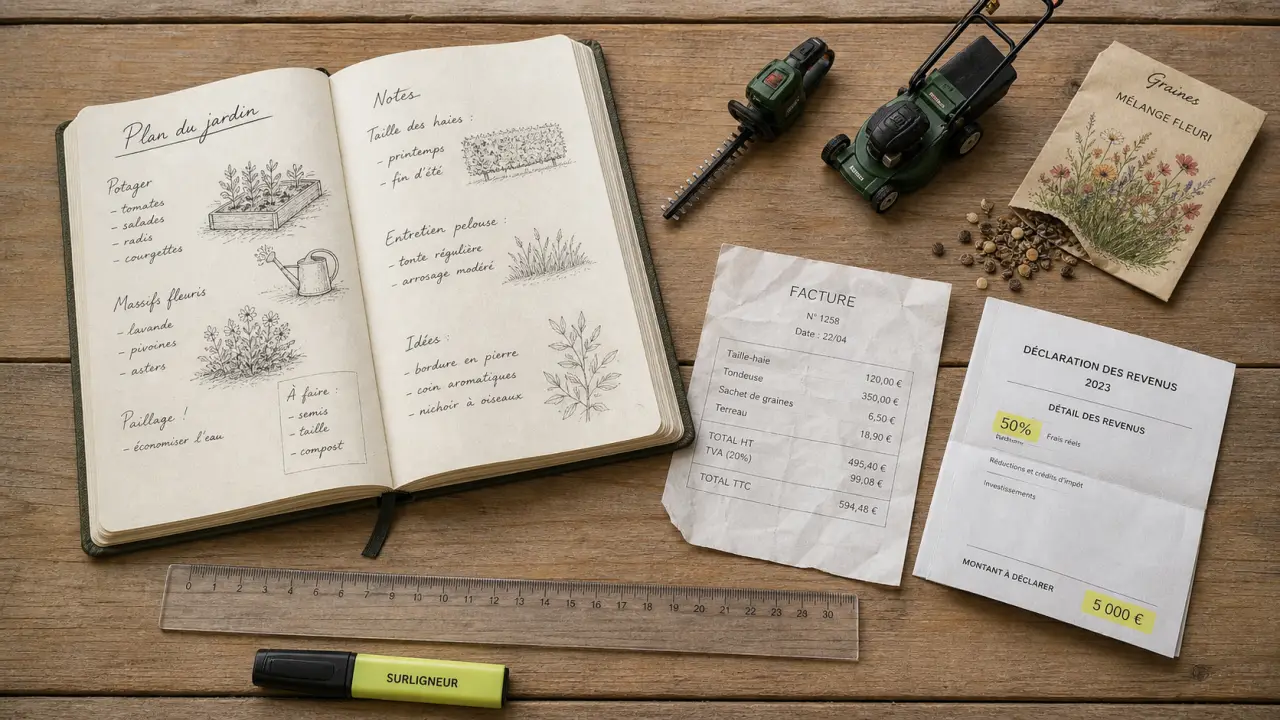 Plan du jardin
Potager
- tomates
- salades
- radis
- courgettes
Massifs fleuris
- lavande
- pivoines
- asters
Paillage !
- économiser l'eau
À faire :
- semis
- taille
- compost
Notes
Taille des haies :
- printemps
- fin d'été
Entretien pelouse :
- tonte régulière
- arrosage modéré
Idées :
- bordure en pierre
- coin aromatiques
- nichoir à oiseaux
Graines
MÉLANGE FLEURI
FACTURE
N° 1258
Date : 22/04
Taille-haie 120,00 €
Tondeuse 350,00 €
Sachet de graines 6,50 €
Terreau 18,90 €
TOTAL HT 495,40 €
TVA (20%) 99,08 €
TOTAL TTC 594,48 €
DÉCLARATION DES REVENUS
2023
DÉTAIL DES REVENUS
50% Frais réels
Réductions et crédits d'impôt
Investissements
MONTANT À DÉCLARER
5 000 €
0 1 2 3 4 5 6 7 8 9 10 11 12 13 14 15 16 17 18 19 20 21 22 23 28 30
SURLIGNEUR